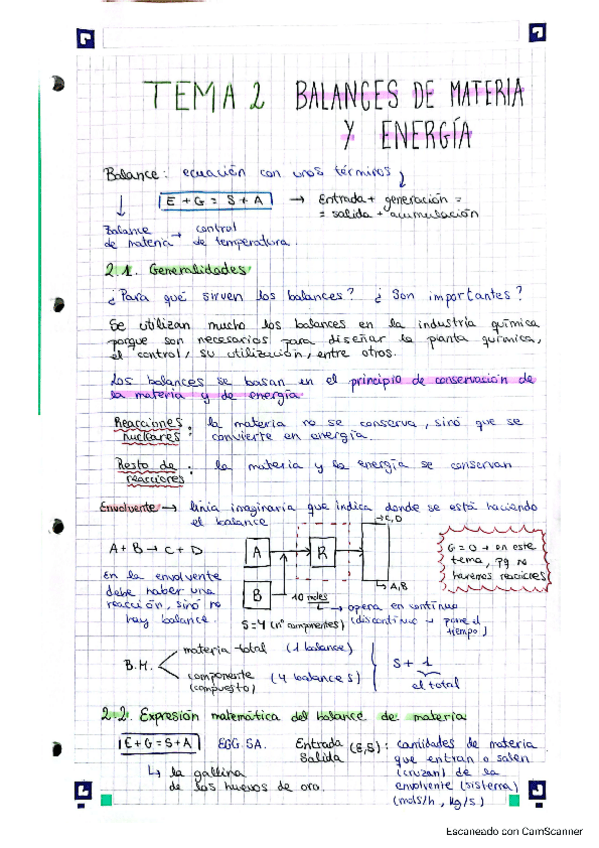 TEMA 2 BALANCES DE MATERIA
Y ENERGÍA
Balance: ecuación con unos términos
E + G = S + A → Entrada + generación =
= salida + acumulación
Balance de materia → control de temperatura.
2.1. Generalidades
¿Para qué sirven los balances? ¿Son importantes?
Se utilizan mucho los balances en la industria química
porque son necesarios para diseñar la planta química,
el control, su utilización, entre otros.
Los balances se basan en el principio de conservación de
la materia y de energía.
Reacciones nucleares: la materia no se conserva, sinó que se
convierte en energía.
Resto de reacciones: la materia y la energía se conservan
Envolvente → línia imaginaria que indica donde se está haciendo
el balance
A + B → C + D
En la envolvente
debe haber una
reacción, sinó no
hay balance.
A
B
R
C, D
A, B
10 moles/L → opera en continuo
S = 4 (nº componentes)
(discontinuo → pone el
tiempo)
G = 0 → en este
tema, pq no
haremos reacciones
B.M.
materia total (1 balance)
componente (4 balances)
(compuesto)
S + 1
el total
2.2. Expresión matemática del balance de materia
E + G = S + A EGG.SA.
↳ la gallina
de los huevos de oro.
Entrada
Salida
(E, S): cantidades de materia
que entran o salen
(cruzan) de la
envolvente (sistema)
(mols/h, kg/s)
Escaneado con CamScanner